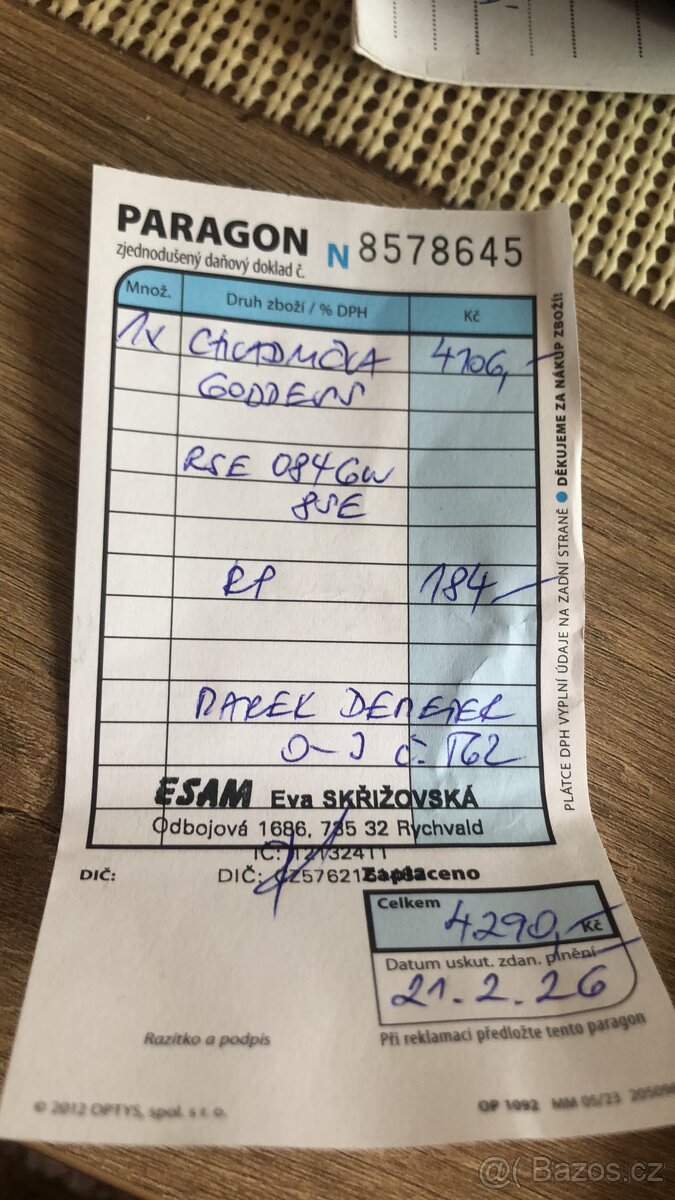 PARAGON N 8578645
zjednodušený daňový doklad č.
Množ. Druh zboží / % DPH Kč
1x CHLADNIČKA 4106,-
GODDESS
RSE 084GW
8SE
RP 184,-
MAREK DEMETER
O-J č. 162
ESAM Eva SKŘIŽOVSKÁ
Odbojová 1686, 735 32 Rychvald
IČ: 12132411
DIČ: DIČ: Zaplaceno
Celkem
4290,- Kč
Datum uskut. zdan. plnění
21.2.26
Razítko a podpis
Při reklamaci předložte tento paragon
© 2012 OPTYS, spol. s r. o.
OP 1092 MM 05/23
PLÁTCE DPH VYPLNÍ ÚDAJE NA ZADNÍ STRANĚ ● DĚKUJEME ZA NÁKUP ZBOŽÍ!
@( Bazos.cz